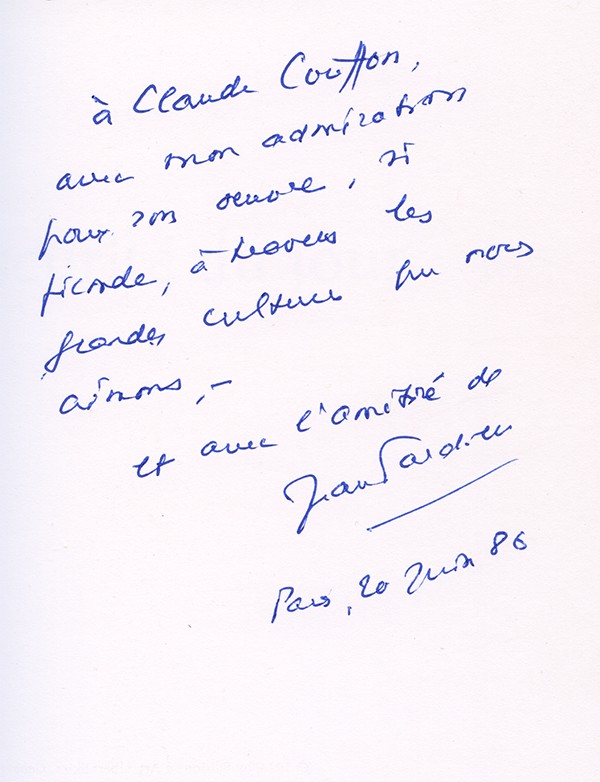 à Claude Couffon,
avec mon admiration
pour son oeuvre, si
féconde, à travers les
grandes cultures que nous
aimons, –
et avec l'amitié de
Jean Tardieu
Paris, 20 Juin 86